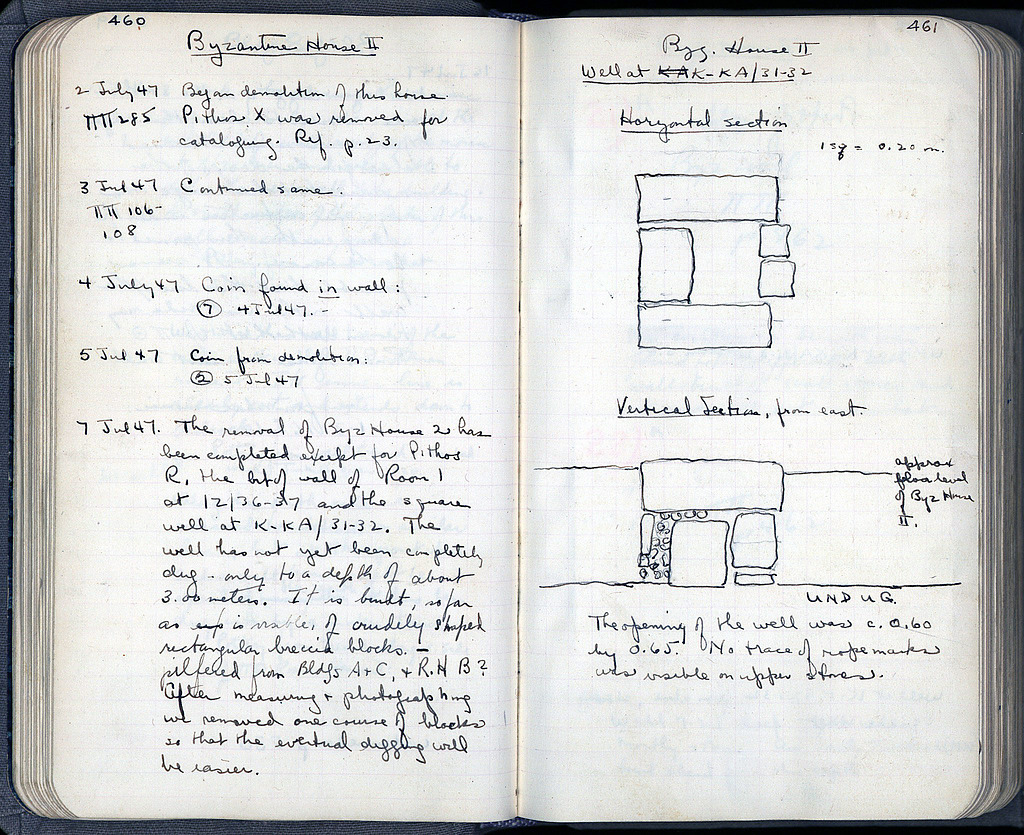 460
Byzantine House II
2 July 47 Began demolition of this house.
ΠΠ 285 Pithos X was removed for
cataloguing. Ref. p. 23.
3 Jul 47 Continued same.
ΠΠ 106-
108
4 July 47 Coin found in wall:
⑦ 4 Jul 47. -
5 Jul 47 Coin from demolition:
② 5 Jul 47
7 Jul 47. The removal of Byz House 2 has
been completed except for Pithos
R, the bit of wall of Room 1
at 12/36-37 and the square
well at K-KA/31-32. The
well has not yet been completely
dug - only to a depth of about
3.00 meters. It is built, so far
as is visible, of crudely shaped
rectangular breccia blocks. -
pilfered from Bldgs A+C, + R.H B?
After measuring + photographing
we removed one course of blocks
so that the eventual digging will
be easier.
461
Byz. House II
Well at K-KA/31-32
Horizontal section
1 sq = 0.20 m.
Vertical Section, from east.
approx
floor level
of Byz House
II.
UNDUG
The opening of the well was c. 0.60
by 0.65. No trace of rope marks
was visible on upper stones.